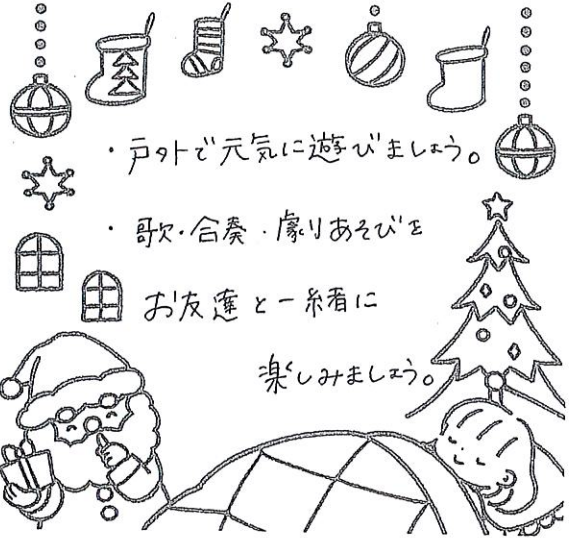 ・戸外で元気に遊びましょう。
・歌・合奏・劇りあそびを
お友達と一緒に
楽しみましょう。